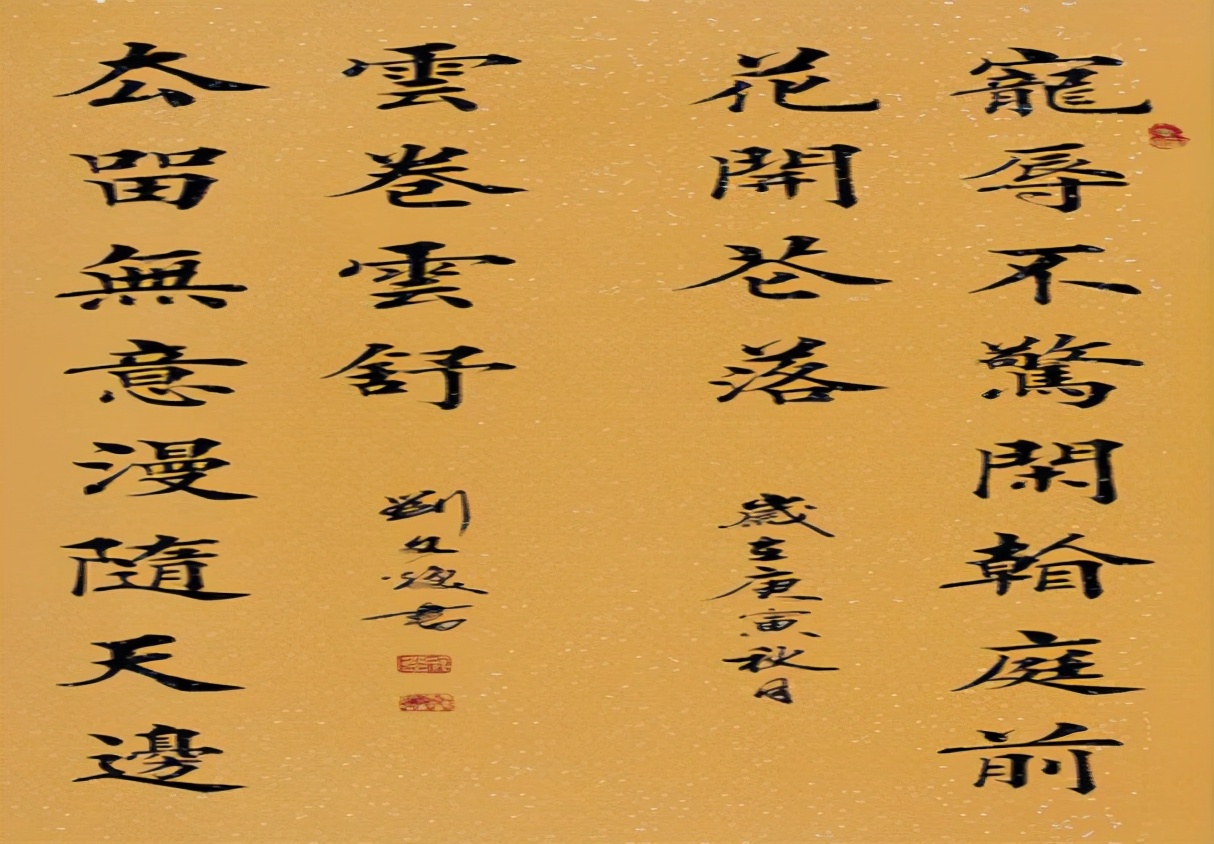 寵辱不驚閑看庭前
花開花落
歲在庚寅秋月
去留無意漫隨天邊
雲卷雲舒
劉文書